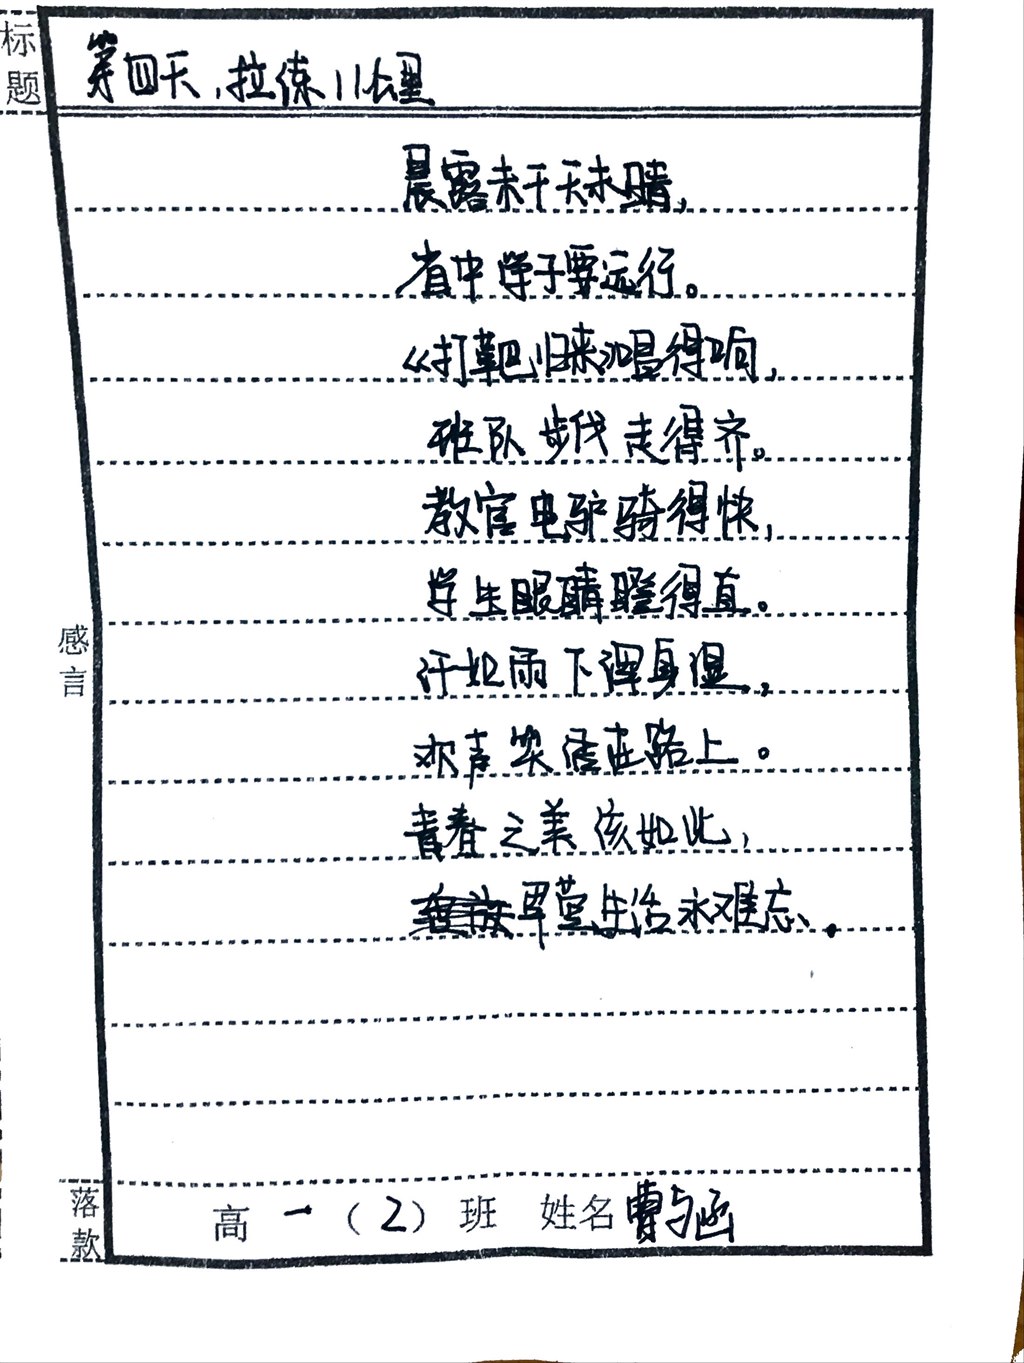 标题
第四天,拉练11公里
晨露未干天未晴,
省中学子要远行。
《打靶归来》唱得响,
班队步伐走得齐。
教官电驴骑得快,
学生眼睛瞪得直。
汗如雨下浑身湿,
欢声笑语在路上。
青春之美该如此,
军营生活永难忘。
感言
落款
高一(2)班 姓名曹与函